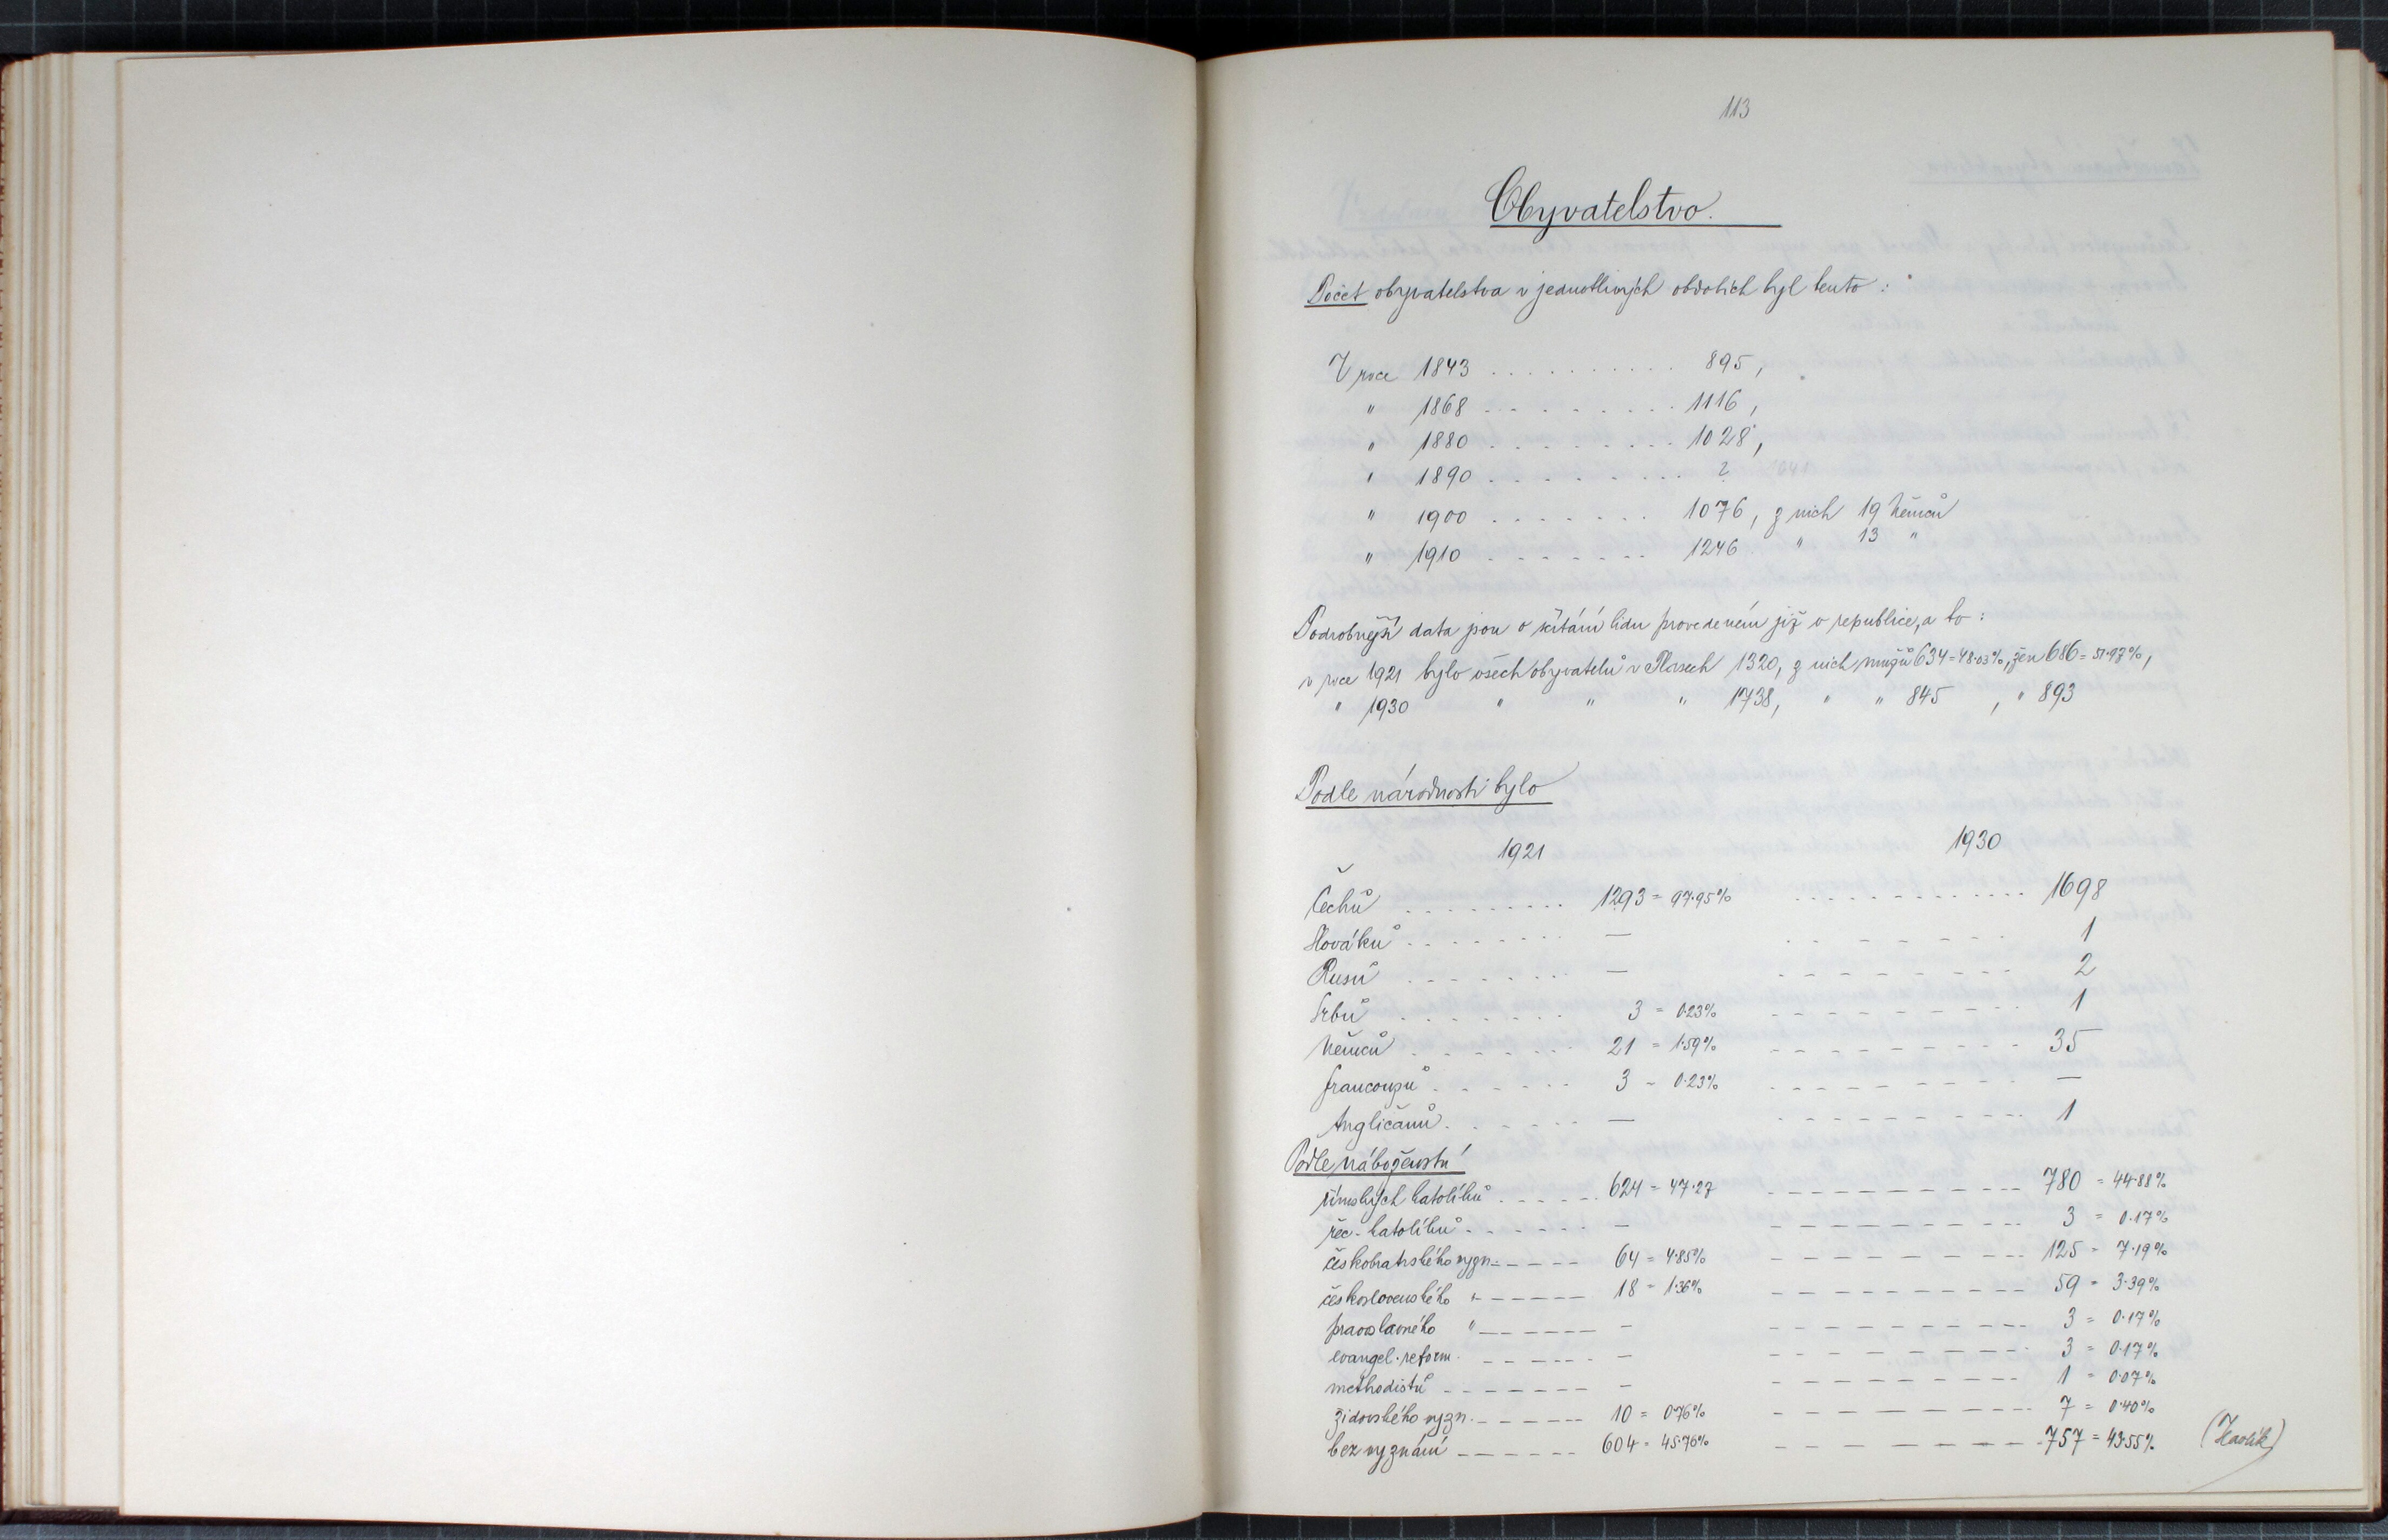 113
Obyvatelstvo.
Počet obyvatelstva v jednotlivých obdobích byl tento:
V roce 1843 .......... 895,
" 1868 ......... 1116,
" 1880 ......... 1028,
" 1890 ......... ?
" 1900 ....... 1076, z nich 19 Němců
" 1910 ....... 1246 " 13 "
Podrobnější data jsou o sčítání lidu provedeném již v republice, a to:
v roce 1921 bylo všech obyvatelů v Plasech 1320, z nich mužů 634=48·03%, žen 686=51·97%,
" 1930 " " " 1738, " " 845, " 893
Podle národnosti bylo
1921 1930
Čechů ......... 1293 = 97·95% ............. 1698
Slováků ........ — ....... 1
Rusů ....... — ........ 2
Srbů ........ 3 = 0·23% ........ 1
Němců ....... 21 = 1·59% ......... 35
Francouzů ...... 3 = 0·23% ........ —
Angličanů ...... — ......... 1
Podle náboženství
římských katolíků ..... 624 = 47·27 ---------- 780 = 44·88%
řec.-katolíků ...... — --------- 3 = 0·17%
českobratrského vyzn. ----- 64 = 4·85% --------- 125 = 7·19%
československého " ------ 18 = 1·36% ---------- 59 = 3·39%
pravoslavného " ------ — --------- 3 = 0·17%
evangel. reform. ------ — --------- 3 = 0·17%
methodistů ------- — --------- 1 = 0·07%
židovského vyzn. ------ 10 = 0·76% --------- 7 = 0·40%
bez vyznání ------ 604 = 45·76% --------- 757 = 43·55% (Havlík)